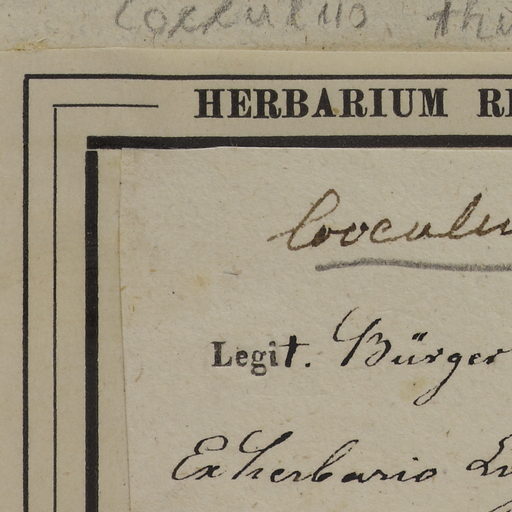 Cocculus. thu
HERBARIUM RE
Cocculu
Legit. Bürger
Ex herbario Lu